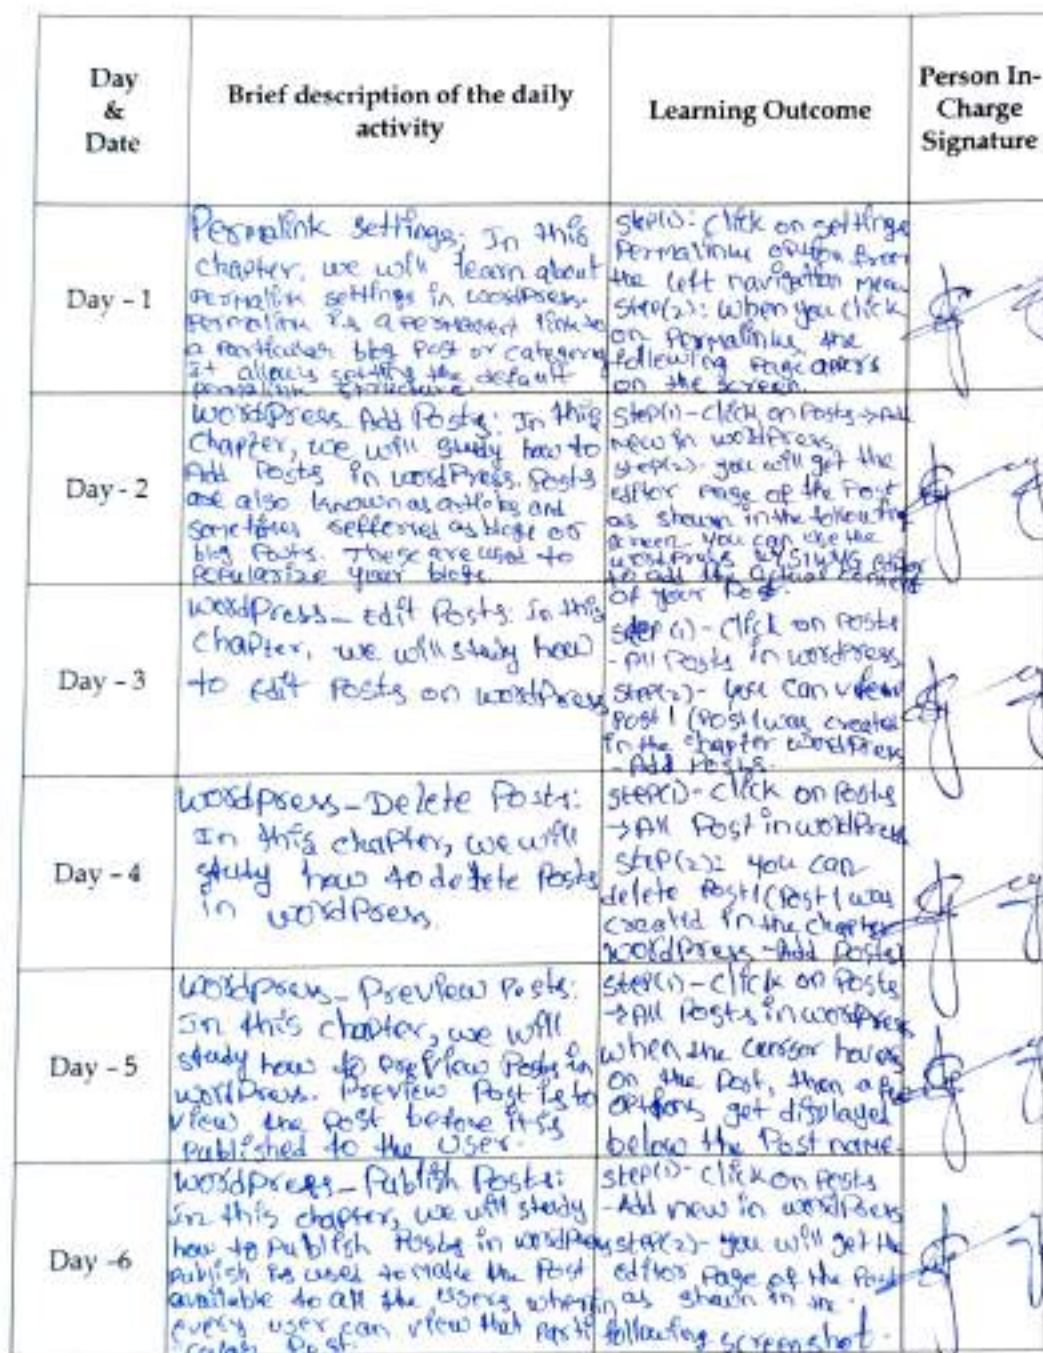 Day
&
Date
Brief description of the daily
activity
Learning Outcome
Person In-
Charge
Signature
Day - 1
Permalink settings; In this
chapter, we will learn about
permalink settings in wordPress.
Permalink is a permanent link to
a particular blog post or category
it allows setting the default
permalink structure.
step(1): Click on settings
Permalinks option from
the left navigation menu
Step(2): When you click
on Permalinks, the
following page apers
on the screen.
Day - 2
WordPress Add Posts: In this
Chapter, we will study how to
Add Posts in wordPress. Posts
are also known as articles and
sometimes refferred as blogs or
blog Posts. These are used to
popularize your blogs.
Step(1) - click on Posts → Add
new in wordPress
step(2) - you will get the
editor page of the Post
as shown in the following
screen. You can use the
wordPress WYSIWYG editor
to add the actual content
of your Post.
Day - 3
WordPress - Edit Posts: In this
chapter, we will study how
to Edit Posts on wordPress
step (1) - Click on posts
- All Posts in wordpress
step(2) - you can view
Post 1 (Post 1 was created
in the chapter wordPress
- Add Posts.
Day - 4
wordpress - Delete Posts:
In this chapter, we will
study how to delete Posts
in wordPress.
step(1) - click on Posts
→ All Post in wordPress
step(2): you can
delete Post 1 (Post 1 was
created in the chapter
wordPress - Add Posts)
Day - 5
wordpress - Preview Posts:
In this chapter, we will
study how to preview Posts in
wordPress. Preview Post is to
view the post before it is
published to the user.
step(1) - Click on Posts
→ All Posts in wordpress
when the cursor hovers
on the Post, then a few
options get displayed
below the Post name.
Day -6
wordPress - Publish Posts:
In this chapter, we will study
how to Publish Posts in wordPress
publish is used to make the Post
available to all the users wherein
every user can view that parti
cular Post.
step(1) - Click on Posts
- Add new in wordPress
step(2) - you will get the
editor page of the Post
as shown in the
following screenshot.